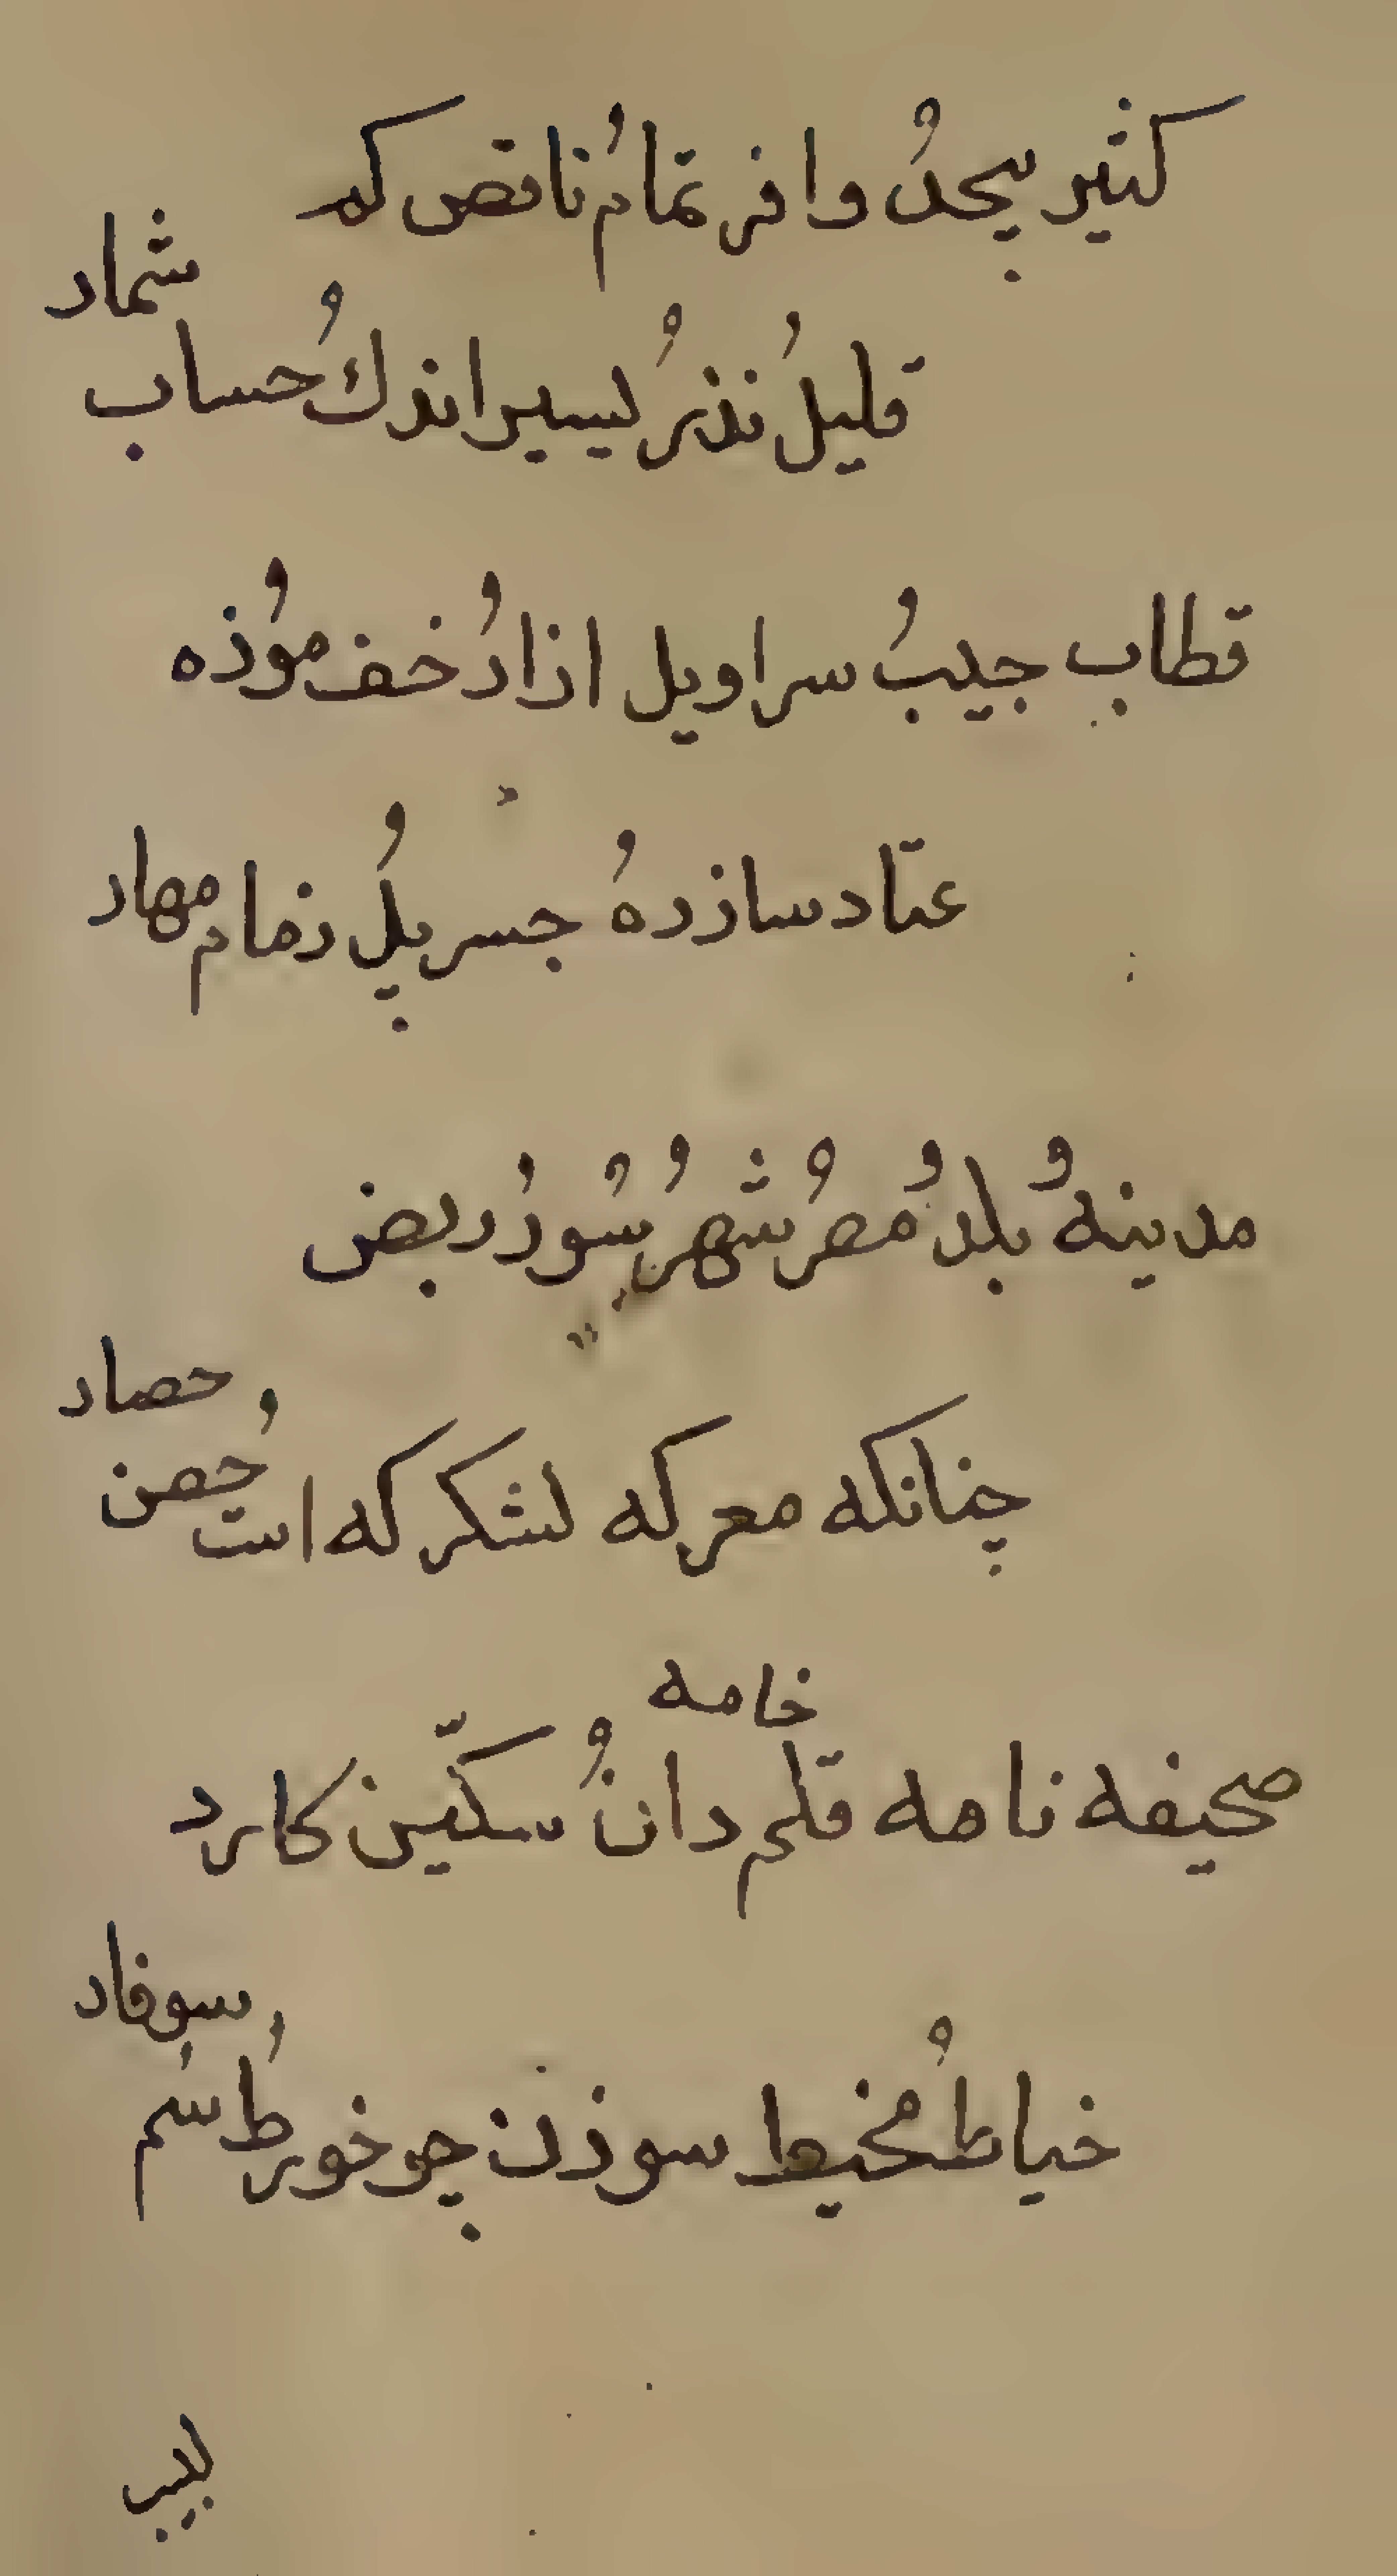 كثير بيحدُ وافر تمامُ ناقص كم
شمار
قليلُ نذرُ يسير اندكُ حساب
قطاب جيبُ سراويل ازارُ خف موُذه
عتاد سازدهُ جسر پلُ زمام مهار
مدينهُ بلدُ مصرُ شهرُ سُورُ ربض
حصار
چنانكه معركه لشكر كه است حِصن
خامه
صحيفه نامه قلم دانُ سكّين كارد
سوفار
خياطُ مخيط سوذن چو خورطُ سُم